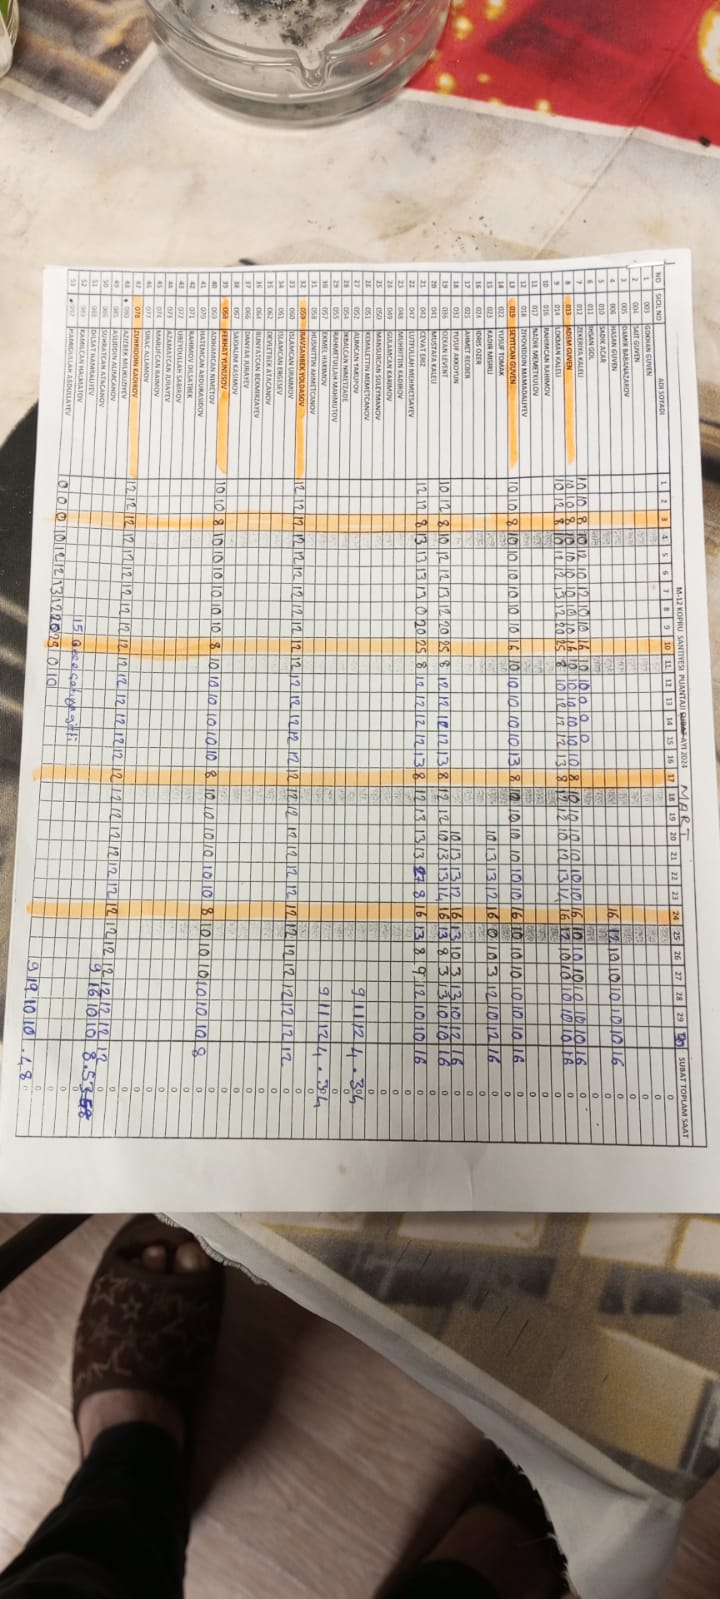 M-12 KOPRU SANTIYESI PUANTAJI SUBAT AYI 2024 MART
NO SICIL NO ADI SOYADI 1 2 3 4 5 6 7 8 9 10 11 12 13 14 15 16 17 18 19 20 21 22 23 24 25 26 27 28 29 30 SUBAT TOPLAM SAAT
1 003 GOKHAN GUVEN 0
2 004 SAIT GUVEN 0
3 005 DAMIR BABANAZAROV 0
4 006 HASAN GUVEN 16 12 10 10 10 10 10 16 0
5 010 SADIK ACAR 0
6 011 IHSAN GOL 0
7 012 ZEKERIYA KALELI 10 10 8 10 12 10 12 10 10 16 10 10 0 0 0 0
8 013 ADEM GUVEN 10 10 8 10 10 10 10 10 10 16 10 10 10 10 10 10 8 10 10 10 10 10 10 16 10 10 10 10 10 10 16 0
9 014 LOKMAN KALELI 10 12 8 10 12 12 13 12 20 25 8 10 12 12 12 13 8 12 12 10 12 13 14 16 12 10 10 10 10 10 16 0
10 016 RAHIMCAN RAHIMOV 0
11 017 NADIR MEMETKULOV 0
12 018 ZIYOVIDDIN MAMADALIYEV 0
13 019 SEYITCAN GUVEN 10 10 8 10 10 10 10 10 10 16 10 10 10 10 10 13 8 10 10 10 10 10 10 16 10 10 10 10 10 10 16 0
14 022 YUSUF TOMAK 0
15 023 KADIR MISIRLI 10 13 13 12 16 0 10 3 12 10 12 16 0
16 024 IDRIS OZER 0
17 025 AHMET RECBER 0
18 032 YUSUF AKKOYUN 10 13 13 12 16 13 10 3 13 10 12 16 0
19 036 OZKAN LEVENT 10 12 8 10 12 12 13 12 20 25 8 12 12 12 12 13 8 12 12 10 13 13 14 16 13 8 3 13 10 10 16 0
20 041 MUSTAFA KALELI 0
21 042 CEVAT ERIZ 12 12 8 13 13 13 13 0 20 25 8 12 12 12 12 13 8 12 13 13 13 27 8 16 13 8 9 12 10 10 16 0
22 047 LUTFULLAH MEHMETSAYEV 0
23 048 MUHRITTIN KADIROV 0
24 049 GULAMCAN KARIMOV 0
25 050 MANSURCAN SULEYMANOV 0
26 051 KEMALETTIN MEMETCANOV 0
27 052 ALIMCAN YAKUPOV 9 11 12 4 . 34
28 054 IKBALCAN NIMETZADE 0
29 055 RAHMETULLAH MAHMUTOV 0
30 057 EKMEL HAKIMOV 9 11 12 4 . 34
31 058 HUSNITTIN AHMETCANOV 0
32 059 RAVSANBEK YOLDASOV 12 12 12 12 12 12 12 12 12 12 12 12 12 12 12 12 12 12 12 12 12 12 12 12 12 12 12 12 12 12 12 0
33 060 ISLAMCAN URAIMOV 0
34 061 ISLAMCAN ERGESEV 0
35 062 DEVLETBEK ATACANOV 0
36 064 BUNYATCAN BEKMIRZAYEV 0
37 066 DANYAR JURAYEV 0
38 067 SAIDALIM KASIMOV 0
39 068 FERHAT YUNUSOV 10 10 8 10 10 10 10 10 10 8 10 10 10 10 10 10 8 10 10 10 10 10 10 8 10 10 10 10 10 10 8 0
40 069 ADIHAMCAN NIMETOV 0
41 070 HATEMCAN ABDURASIDOV 0
42 071 RAHIMOV DILSATBEK 0
43 072 UBEYDULLAH SABIROV 0
44 073 AZAMATCAN JURAYEV 0
45 074 MARUFCAN RAIMOV 0
46 077 SIRAC ALLAMOV 0
47 078 ZUHRIDDIN KADIROV 12 12 12 12 12 12 12 12 12 12 12 12 12 12 12 12 12 12 12 12 12 12 12 12 12 12 12 12 12 12 12 0
48 080 AZIZBEK MILIKUZIYEV 9 16 10 10 8.53
49 085 ASLIDDIN ALIMCANOV 0
50 086 SUHRATCAN ATACANOV 0
51 088 DILSAT HAMRALIYEV 0
52 089 KAMILCAN HALMATOV 15 Gece çalışıp gitti 0
53 092 HAMIDULLAH ABDULLAYEV 0 0 0 10 12 12 13 12 20 25 0 10 9 19 10 10 . 48